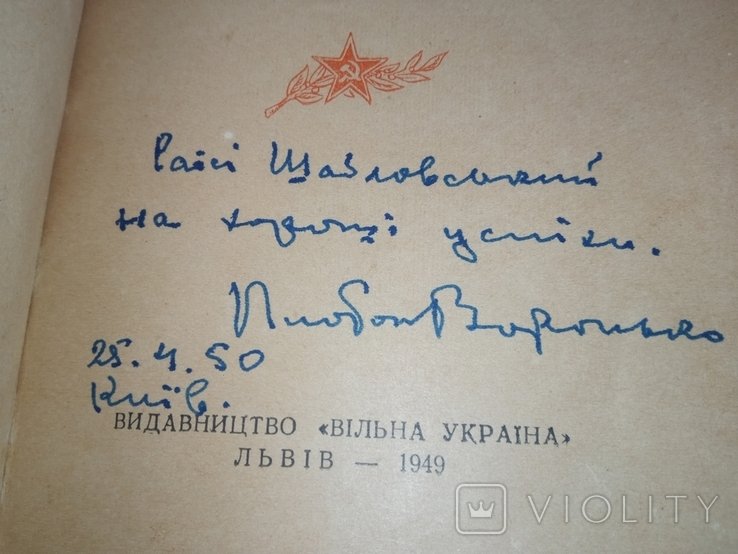 Раїсі Шайловський
на хороші успіхи.
Любов Воронько
25.4.50
Київ.
ВИДАВНИЦТВО «ВІЛЬНА УКРАЇНА»
ЛЬВІВ — 1949
VIOLITY